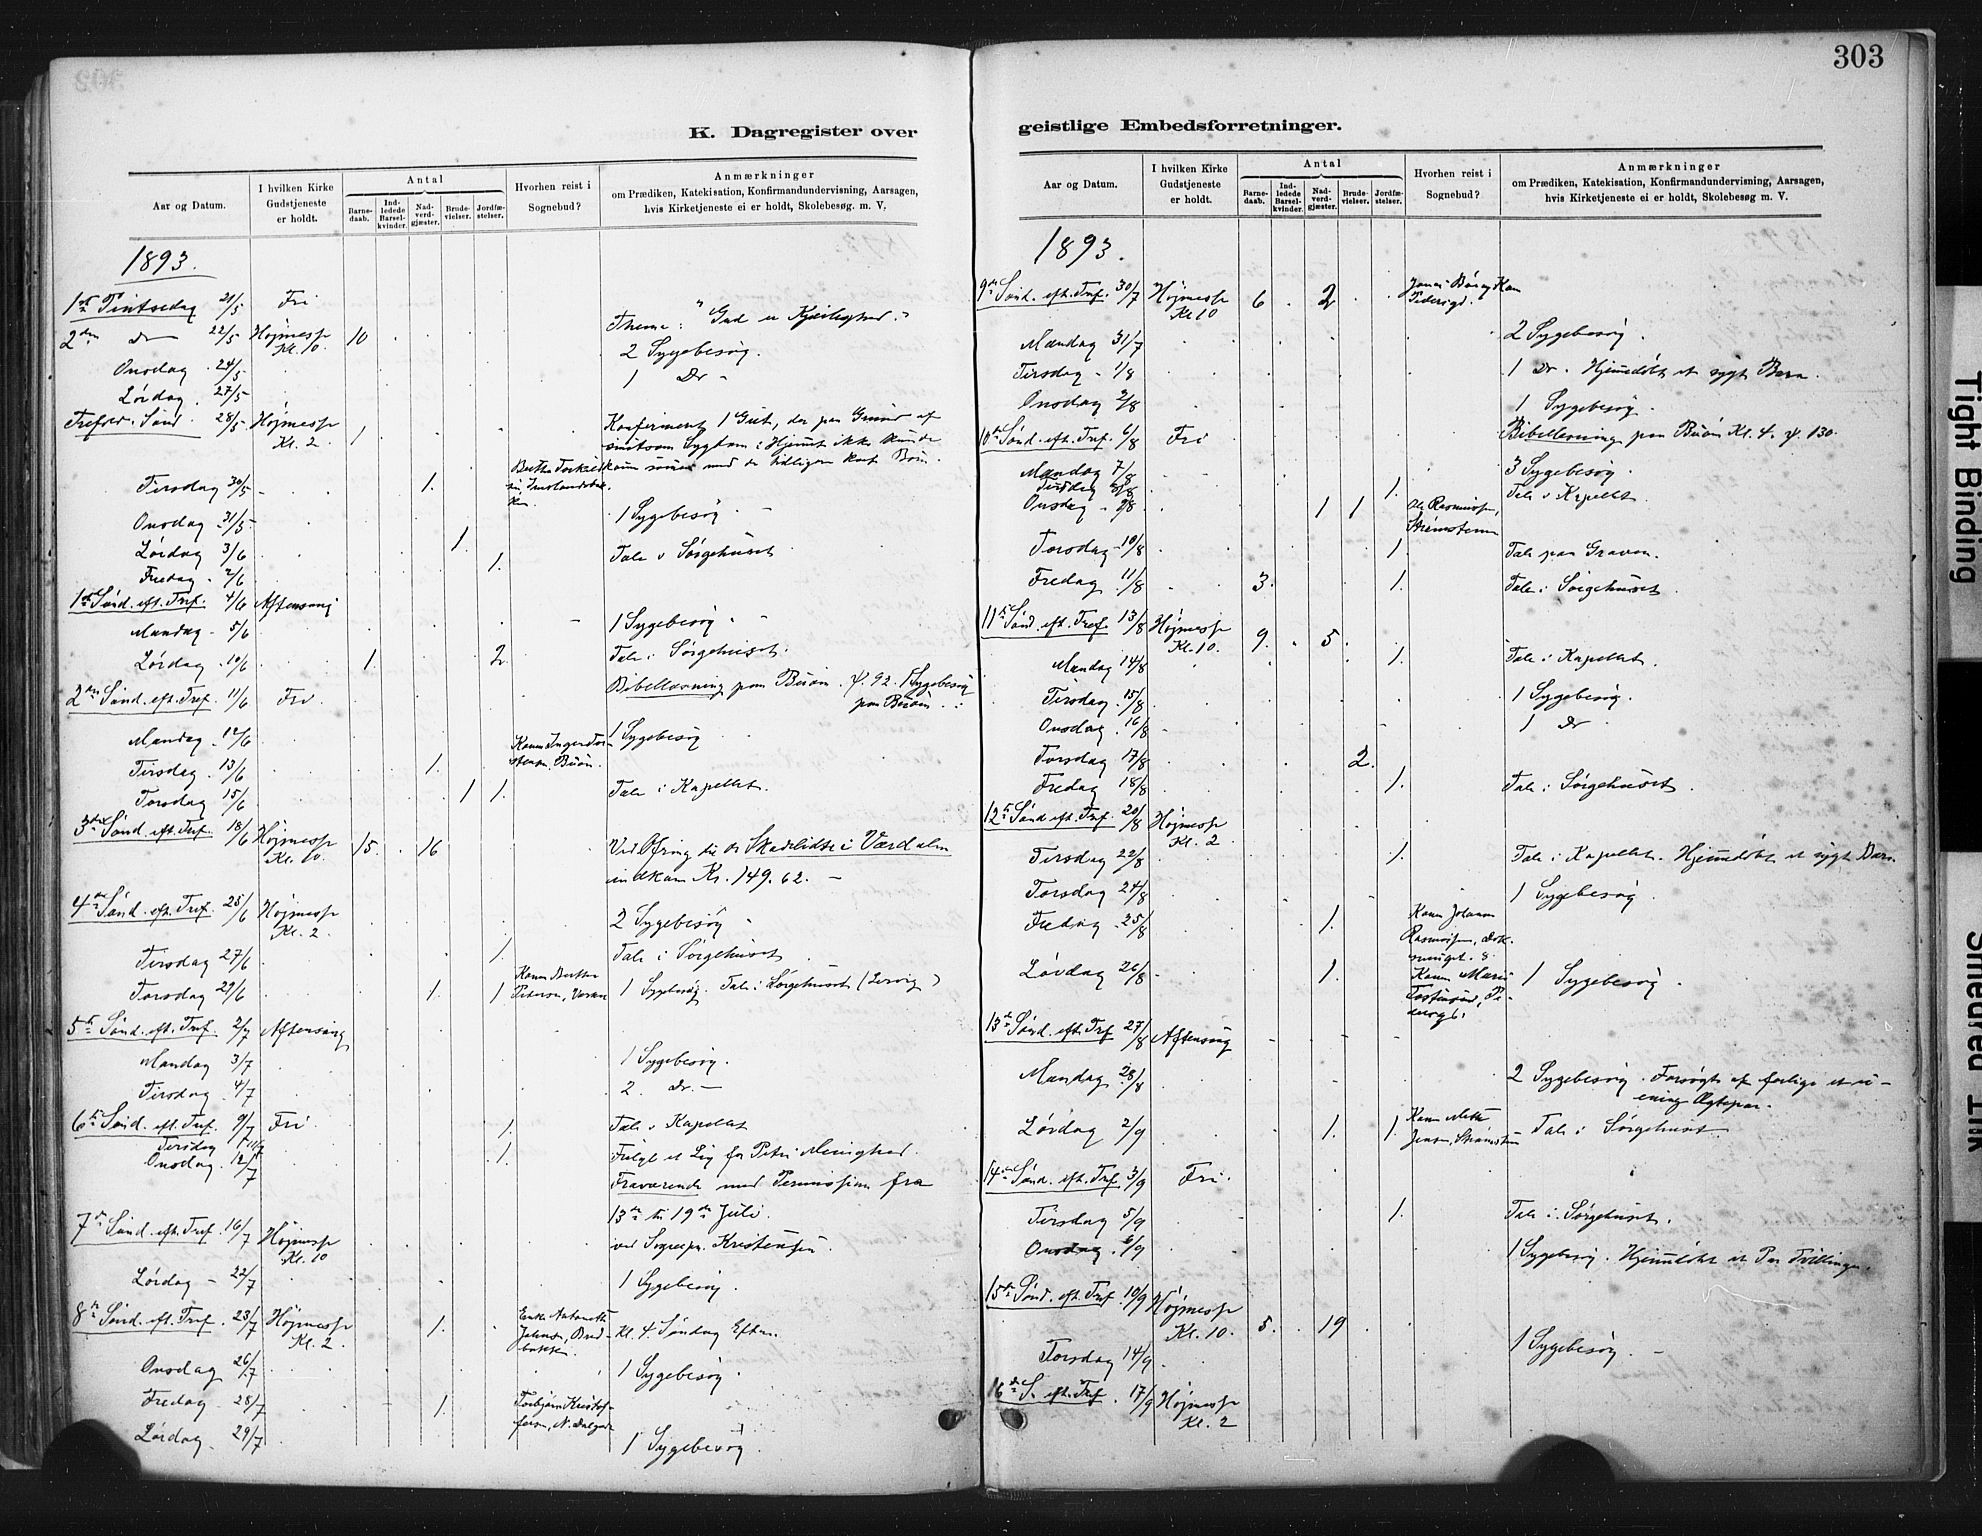 303
K. Dagregister over
Aar og Datum.
I hvilken Kirke Gudstjeneste er holdt.
Antal
Barnedaab.
Indledede Barselkvinder.
Nadverdgjæster.
Brudevielser.
Jordfæstelser.
Hvorhen reist i Sognebud?
Anmærkninger
om Prædiken, Katekisation, Konfirmandundervisning, Aarsagen,
hvis Kirketjeneste ei er holdt, Skolebesøg m. V.
1893.
1ste Pintsedag 21/5 Fri
Thema: "Gud er Kjærlighed."
2den do 22/5 Højmesse Kl. 10. 10
2 Sygebesøg.
Onsdag 24/5 1 Do -
Lørdag 27/5
Trefold. Sønd. 28/5 Højmesse Kl. 2. 1
Konfirmeret 1 Gut, der paa Grund af
smitsom Sygdom i Hjemmet ikke kunde
Tirsdag 30/5 1.
Onsdag 31/5 1 Sygebesøg
Lørdag 3/6 1.
Fredag 2/6 1. Tale i Sørgehuset
1ste Sønd. eft. Tref. 4/6 Aftensang
Mandag 5/6 1 Sygebesøg
Lørdag 10/6 1. 2 Tale i Sørgehuset.
2den Sønd. eft. Tref. 11/6 Fri Bibellæsning paa Buøn. ψ. 92. 1 Sygebesøg
paa Buøen.
Mandag 12/6 1 Sygebesøg
Tirsdag 13/6 1.
Torsdag 15/6 1 1. Tale i Kapellet.
3die Sønd. eft. Tref. 18/6 Højmesse Kl. 10. 15. 16 Ved Ofring til de Skadelidte i Værdalen
indkom Kr. 149.62. -
4de Sønd. eft. Tref. 25/6 Højmesse Kl. 2. 2 Sygebesøg
Tirsdag 27/6 1. Tale i Sørgehuset
Torsdag 29/6 1. 1 1 Sygebesøg. Tale i Sørgehuset
5te Sønd. eft. Tref. 2/7 Aftensang
Mandag 3/7 1 Sygebesøg.
Tirsdag 4/7 2 Do -
6te Sønd. eft. Tref. 9/7 Fri.
Tirsdag 11/7 1. Tale i Kapellet
Onsdag 12/7 1. Fulgt et Lig for Petri Menighed.
Fraværende med Permission fra
13de til 19de Juli.
7de Sønd. eft. Tref. 16/7 Højmesse Kl. 10 ved Sognepr. Kristensen.
Lørdag - 22/7 1 Sygebesøg.
8de Sønd. eft. Tref. 23/7 Højmesse Kl. 2 1. Kl. 4. Søndag Efterm.
Onsdag 26/7 1 Sygebesøg.
Fredag 28/7 1.
Lørdag 29/7 1 Sygebesøg.
geistlige Embedsforretninger.
Aar og Datum.
I hvilken Kirke Gudstjeneste er holdt.
Antal
Barnedaab.
Indledede Barselkvinder.
Nadverdgjæster.
Brudevielser.
Jordfæstelser.
Hvorhen reist i Sognebud?
Anmærkninger
om Prædiken, Katekisation, Konfirmandundervisning, Aarsagen,
hvis Kirketjeneste ei er holdt, Skolebesøg m. V.
1893.
9de Sønd. eft. Tref. 30/7 Højmesse Kl. 10 6 2
Mandag 31/7 2 Sygebesøg.
Tirsdag 1/8 1 Do. Hjemmedøbt et sygt Barn.
Onsdag 2/8 1 Sygebesøg.
10de Sønd. eft. Tref. 6/8 Fri Bibellæsning paa Buøn Kl. 4. ψ. 130.
Mandag 7/8 3 Sygebesøg.
Tirsdag 8/8 1. Tale i Kapellet.
Onsdag 9/8 1 1 Ole Rasmussen, Strømstenen
Torsdag 10/8 1 Tale paa Graven.
Fredag 11/8 3. 1. Tale i Sørgehuset.
11te Sønd. eft. Tref. 13/8 Højmesse Kl. 10. 9. 5
Mandag 14/8 1. Tale i Kapellet.
Tirsdag 15/8 1 Sygebesøg.
Onsdag 16/8 1 Do
Torsdag 17/8 2.
Fredag 18/8 1. Tale i Sørgehuset.
12te Sønd. eft. Tref. 20/8 Højmesse Kl. 2
Tirsdag 22/8 1. Tale i Kapellet. Hjemmedøbt et sygt Barn.
Torsdag 24/8 1 Sygebesøg.
Fredag 25/8 1.
Lørdag 26/8 1. 1 Sygebesøg.
13de Sønd. eft. Tref 27/8 Aftensang
Mandag 28/8 2 Sygebesøg. Forsøgt at forlige et u-
enig Ægtepar.
Lørdag 2/9 1. 1. Tale i Sørgehuset
14de Sønd. eft. Tref. 3/9 Fri.
Tirsdag 5/9 1. Tale i Sørgehuset.
Onsdag 6/9 1 Sygebesøg. Hjemmedøbt et Par Tvillinger.
15de Sønd. eft. Tref. 10/9 Højmesse Kl. 10. 5. 19
Torsdag 14/9 1 Sygebesøg.
16de S. eft. Tref. 17/9 Højmesse Kl. 2
Tight Binding
Smeared Ink